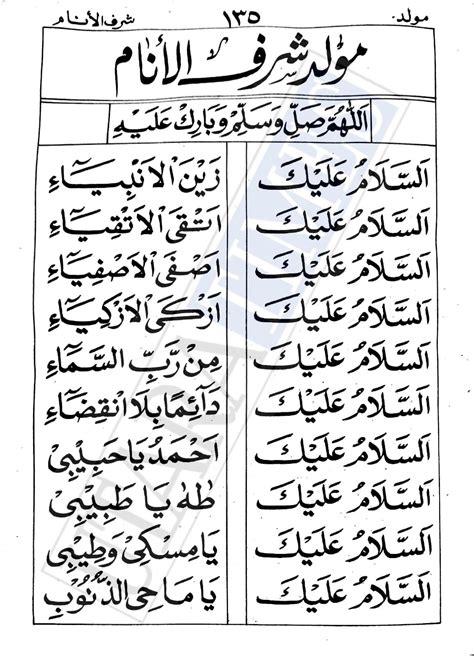 مولد. ١٣٥ شرف الأنام
مَوْلِد شَرَفِ الْأَنَام
اَللّٰهُمَّ صَلِّ وَسَلِّمْ وَبَارِكْ عَلَيْهِ
اَلسَّلَامُ عَلَيْكَ زَيْنَ الْاَنْبِيَآءِ
اَلسَّلَامُ عَلَيْكَ اَتْقَى الْاَتْقِيَآءِ
اَلسَّلَامُ عَلَيْكَ اَصْفَى الْاَصْفِيَآءِ
اَلسَّلَامُ عَلَيْكَ اَزْكَى الْاَزْكِيَآءِ
اَلسَّلَامُ عَلَيْكَ مِنْ رَبِّ السَّمَآءِ
اَلسَّلَامُ عَلَيْكَ دَآئِمًا بِلَا انْقِضَآءِ
اَلسَّلَامُ عَلَيْكَ اَحْمَدُ يَا حَبِيْبِيْ
اَلسَّلَامُ عَلَيْكَ طٰهٰ يَا طَبِيْبِيْ
اَلسَّلَامُ عَلَيْكَ يَا مِسْكِيْ وَطِيْبِيْ
اَلسَّلَامُ عَلَيْكَ يَا مَاحِيَ الذُّنُوْبِ